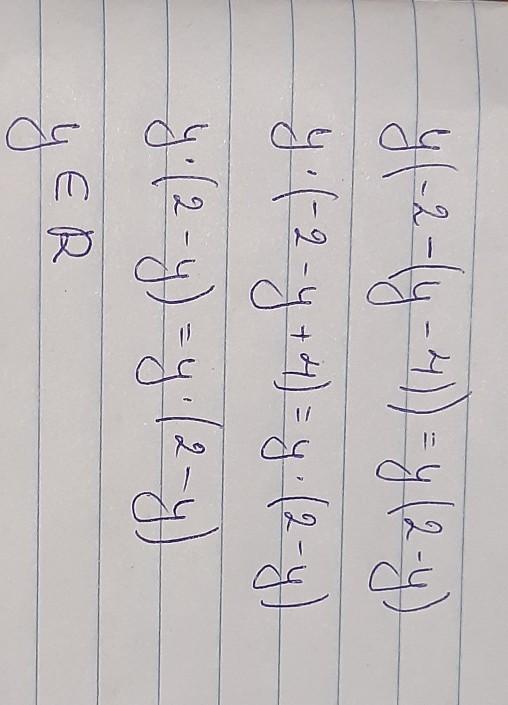 y(-2-(y-4))=y(2-y)
y·(-2-y+4)=y·(2-y)
y·(2-y)=y·(2-y)
y∈R